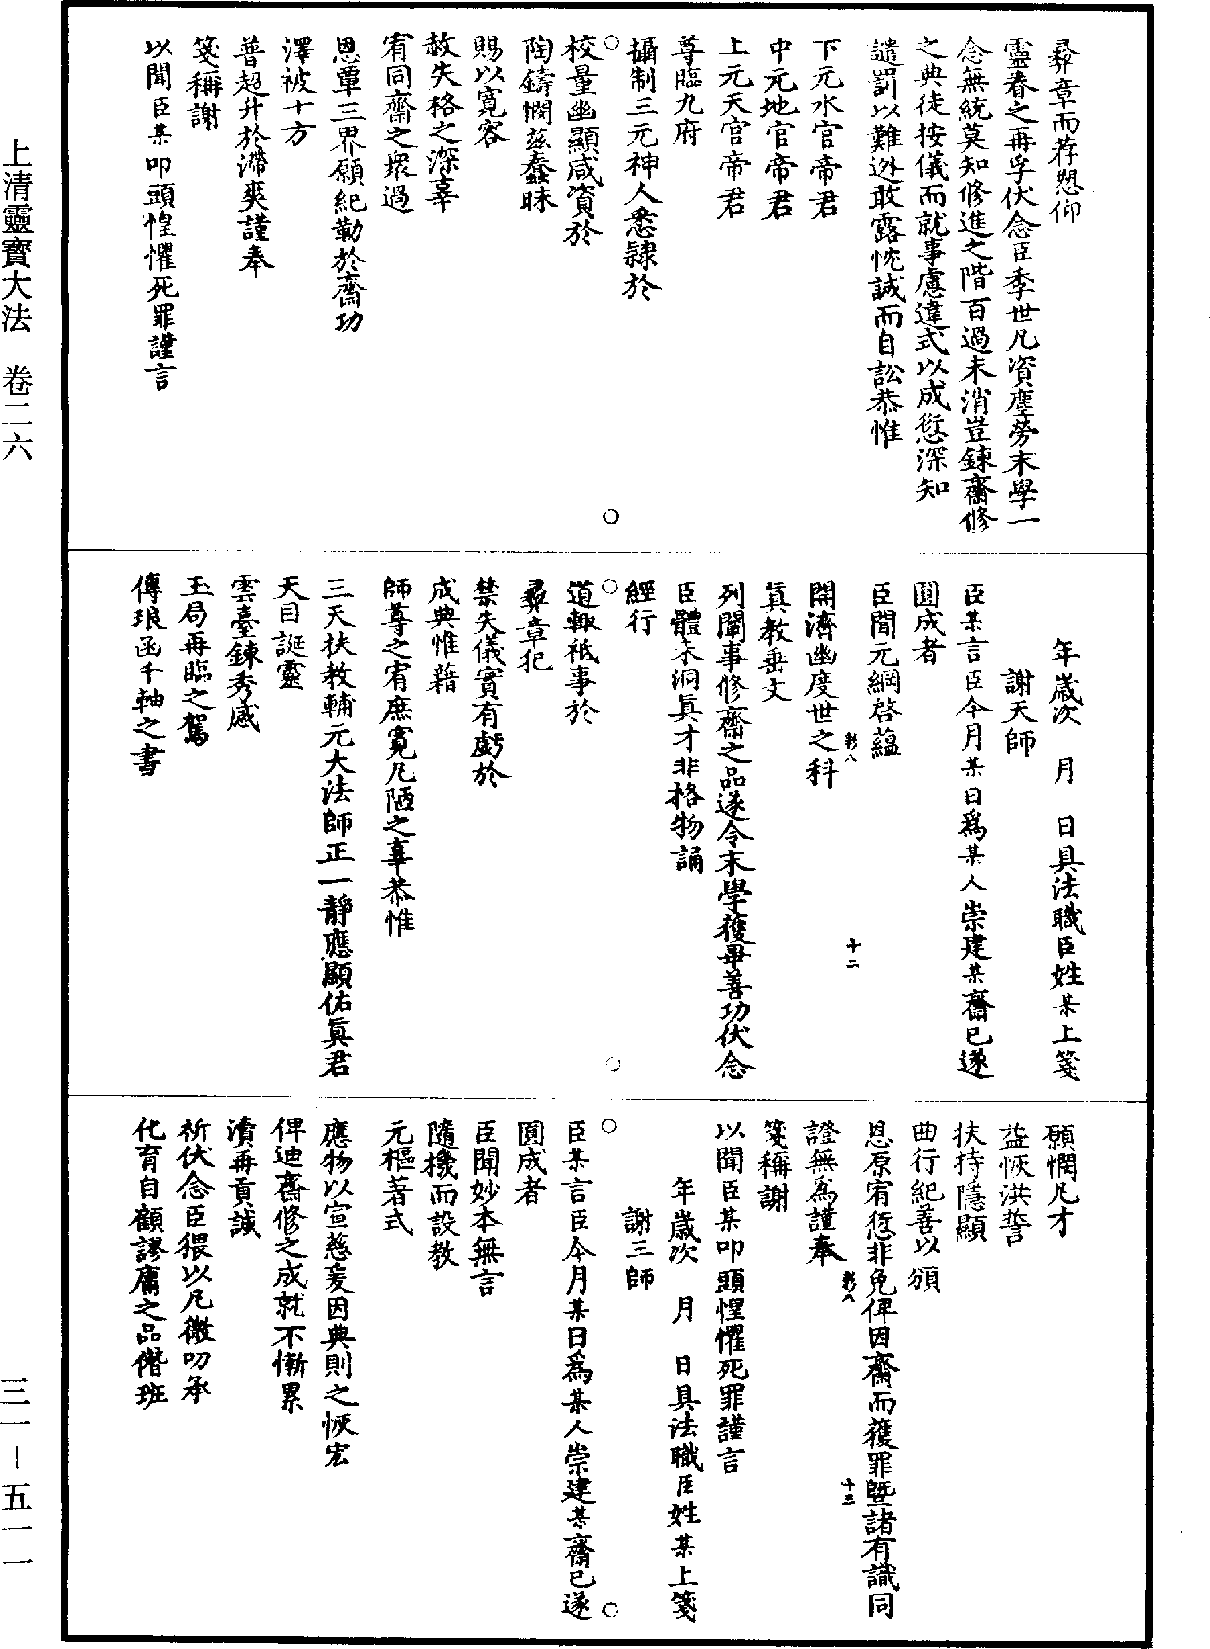 彞章而荐懇仰
靈眷之再孚伏念臣季世凡資塵勞末學一
念無統莫知修進之階百過未消豈鍊齋修
之典徒按儀而就事慮違式以成愆深知
譴罰以難逃敢露忱誠而自訟恭惟
下元水官帝君
中元地官帝君
上元天官帝君
尊臨九府
攝制三元神人悉隷於
校量幽顯咸資於
陶鑄憫茲蠢昧
賜以寬容
赦失格之深辜
宥同齋之衆過
恩覃三界願紀勤於齋功
澤被十方
普超升於滯爽謹奉
箋稱謝
以聞臣某叩頭惶懼死罪謹言
年歲次　月　日具法職臣姓某上箋
謝天師
臣某言臣今月某日爲某人崇建某齋已遂
圓成者
臣聞元綱啓蘊
開濟幽度世之科
眞教垂文
列闡事修齋之品遂令末學獲畢善功伏念
臣體未洞眞才非格物誦
經行
道輙祗事於
彞章犯
禁失儀實有虧於
成典惟藉
師尊之宥庶寬凡陋之辜恭惟
三天扶教輔元大法師正一靜應顯佑眞君
天目誕靈
雲臺鍊秀感
玉局再臨之駕
傳琅函千軸之書
願憫凡才
益恢洪誓
扶持隱顯
曲行紀善以頒
恩原宥愆非免俾因齋而獲罪曁諸有識同
證無爲謹奉
箋稱謝
以聞臣某叩頭惶懼死罪謹言
年歲次　月　日具法職臣姓某上箋
謝三師
臣某言臣今月某日爲某人崇建某齋已遂
圓成者
臣聞妙本無言
隨機而設教
元樞著式
應物以宣慈爰因典則之恢宏
俾迪齋修之成就不慚累
瀆再貢誠
祈伏念臣猥以凡微叨承
化育自顧謬庸之品僭班
上清靈寶大法　卷二六
三一－五一一
十二
十三